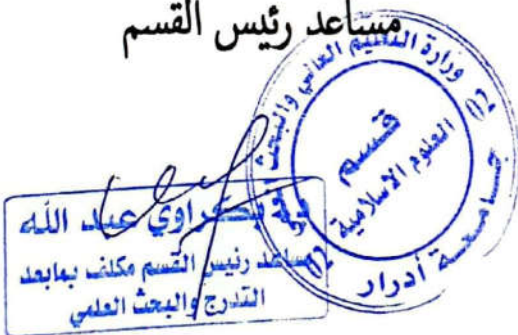 مساعد رئيس القسم
وزارة التعليم العالي والبحث العلمي
02
قسم
العلوم الاسلامية
02
جامعة أدرار
بكراوي عبد الله
مساعد رئيس القسم مكلف بمابعد
التدرج والبحث العلمي